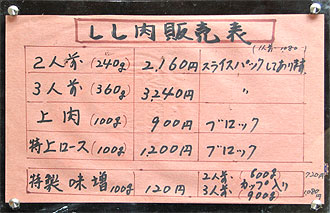 しし肉販売表
(1人前・1080)
2人前・(240g) 2,160円 スライスパックしてあります
3人前 (360g) 3,240円 〃
上肉 (100g) 900円 ブロック
特上ロース(100g) 1,200円 ブロック
特製味増100g 120円 2人前・ 600g 720円
3人前・ カップ入り 900g 1080円